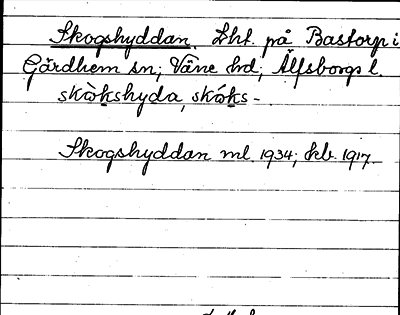 Skogshyddan. Lht. på Bastorp i
Gärdhem sn; Väne hd; Älfsborgs l.
skòkshyda, skóks-
Skogshyddan ml. 1934; kb. 1917.